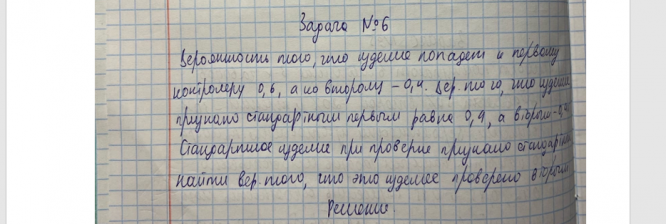 Задача №6
Вероятность того, что изделие попадет к первому
контролеру 0,6, а ко второму – 0,4. Вер. того, что изделие
признано стандартным первым равна 0,9, а вторым –
Стандартное изделие при проверке признано стандартн
найти вер. того, что это изделие проверено вторым
Решение.